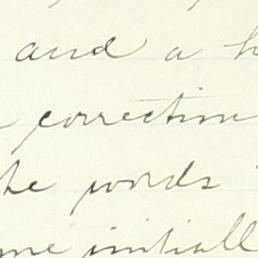 and a
correction
he words
me initiall